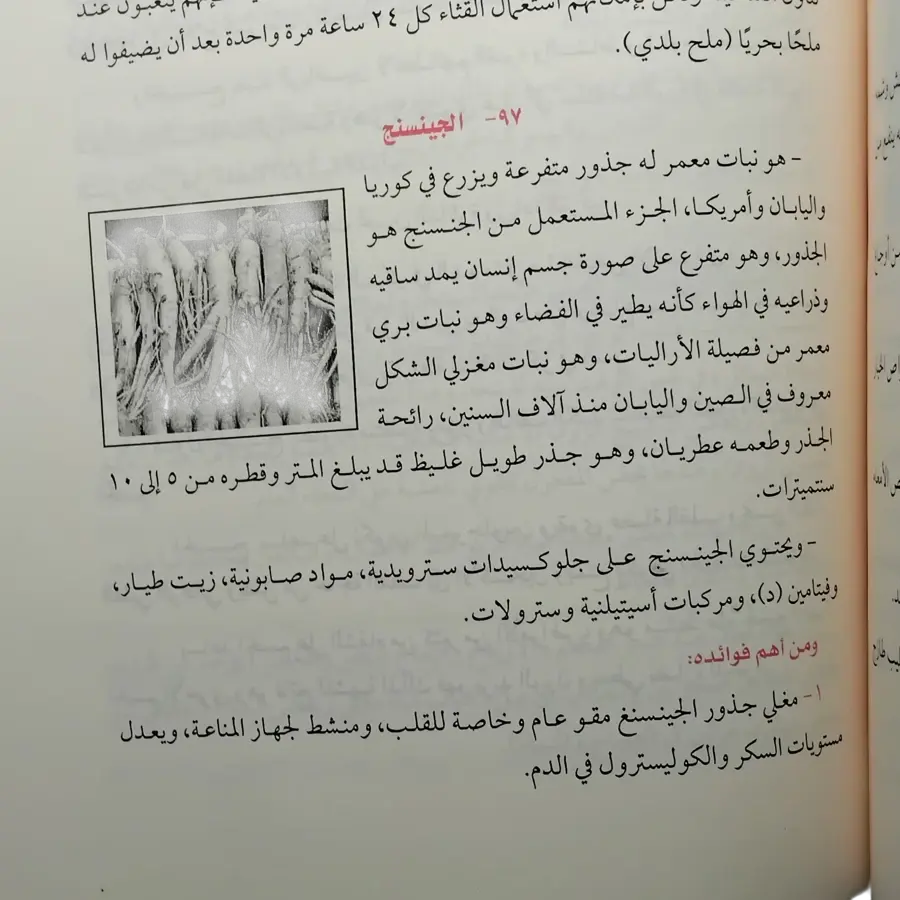 بإمكانهم استعمال القثاء كل ٢٤ ساعة مرة واحدة بعد أن يضيفوا له
ملحًا بحريًا (ملح بلدي).
٩٧- الجينسنج
- هو نبات معمر له جذور متفرعة ويزرع في كوريا
واليابان وأمريكا، الجزء المستعمل من الجنسنج هو
الجذور، وهو متفرع على صورة جسم إنسان يمد ساقيه
وذراعيه في الهواء كأنه يطير في الفضاء وهو نبات بري
معمر من فصيلة الأراليات، وهو نبات مغزلي الشكل
معروف في الصين واليابان منذ آلاف السنين، رائحة
الجذر وطعمه عطريان، وهو جذر طويل غليظ قد يبلغ المتر وقطره من ٥ إلى ١٠
سنتميترات.
- ويحتوي الجينسنج على جلوكسيدات سترويدية، مواد صابونية، زيت طيار،
وفيتامين (د)، ومركبات أسيتيلنية وسترولات.
ومن أهم فوائده:
١- مغلي جذور الجينسنغ مقو عام وخاصة للقلب، ومنشط لجهاز المناعة، ويعدل
مستويات السكر والكوليسترول في الدم.